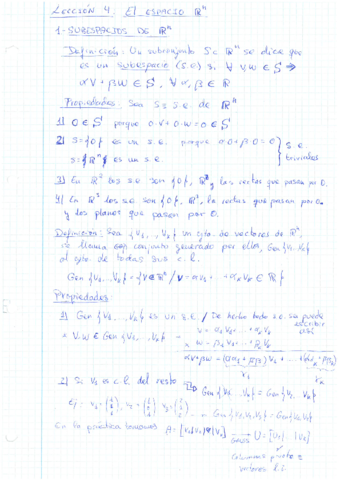 LECCIÓN 4: El espacio ℝⁿ
1-SUBESPACIOS DE ℝⁿ
Definición: Un subconjunto S⊂ℝⁿ se dice que
es un subespacio (s.e) si ∀ v,w ∈ S ⇒
αv + βw ∈ S, ∀ α, β ∈ ℝ
Propiedades: Sea S s.e de ℝⁿ
1) 0 ∈ S porque 0·v+0·w=0 ∈ S
2) S={0} es un s.e. porque α0+β0=0 } s.e.
S={ℝⁿ} es un s.e triviales
3) En ℝ² los s.e son {0}, ℝ², y las rectas que pasan por 0.
4) En los s.e son {0}, las rectas que pasan por 0
y los planos que pasan por 0.
Definición: Sea {v₁,..., vₚ} un cjto de vectores de ℝⁿ.
se llama conjunto generado por ellos, Gen{v₁..vₚ}
al cjto de todas sus c.l.
Gen{v₁,...,vₚ}={v∈ℝⁿ / v=α₁v₁+...+αₚvₚ ∈ ℝ}
Propiedades:
1) Gen{v₁,...,vₚ} es un s.e / De hecho todo s.e se puede escribir así
v,w ∈ Gen{v₁,...,vₚ}
2) Si v₁ es c.l del resto ⇒ Gen{v₁,...,vₚ}=Gen{v₂..vₚ}
En la práctica tomamos A=[v₁|v₂|...|vₚ] → Gauss U=[v₁|...|vₚ]
columnas pivote =
vectores l.i.